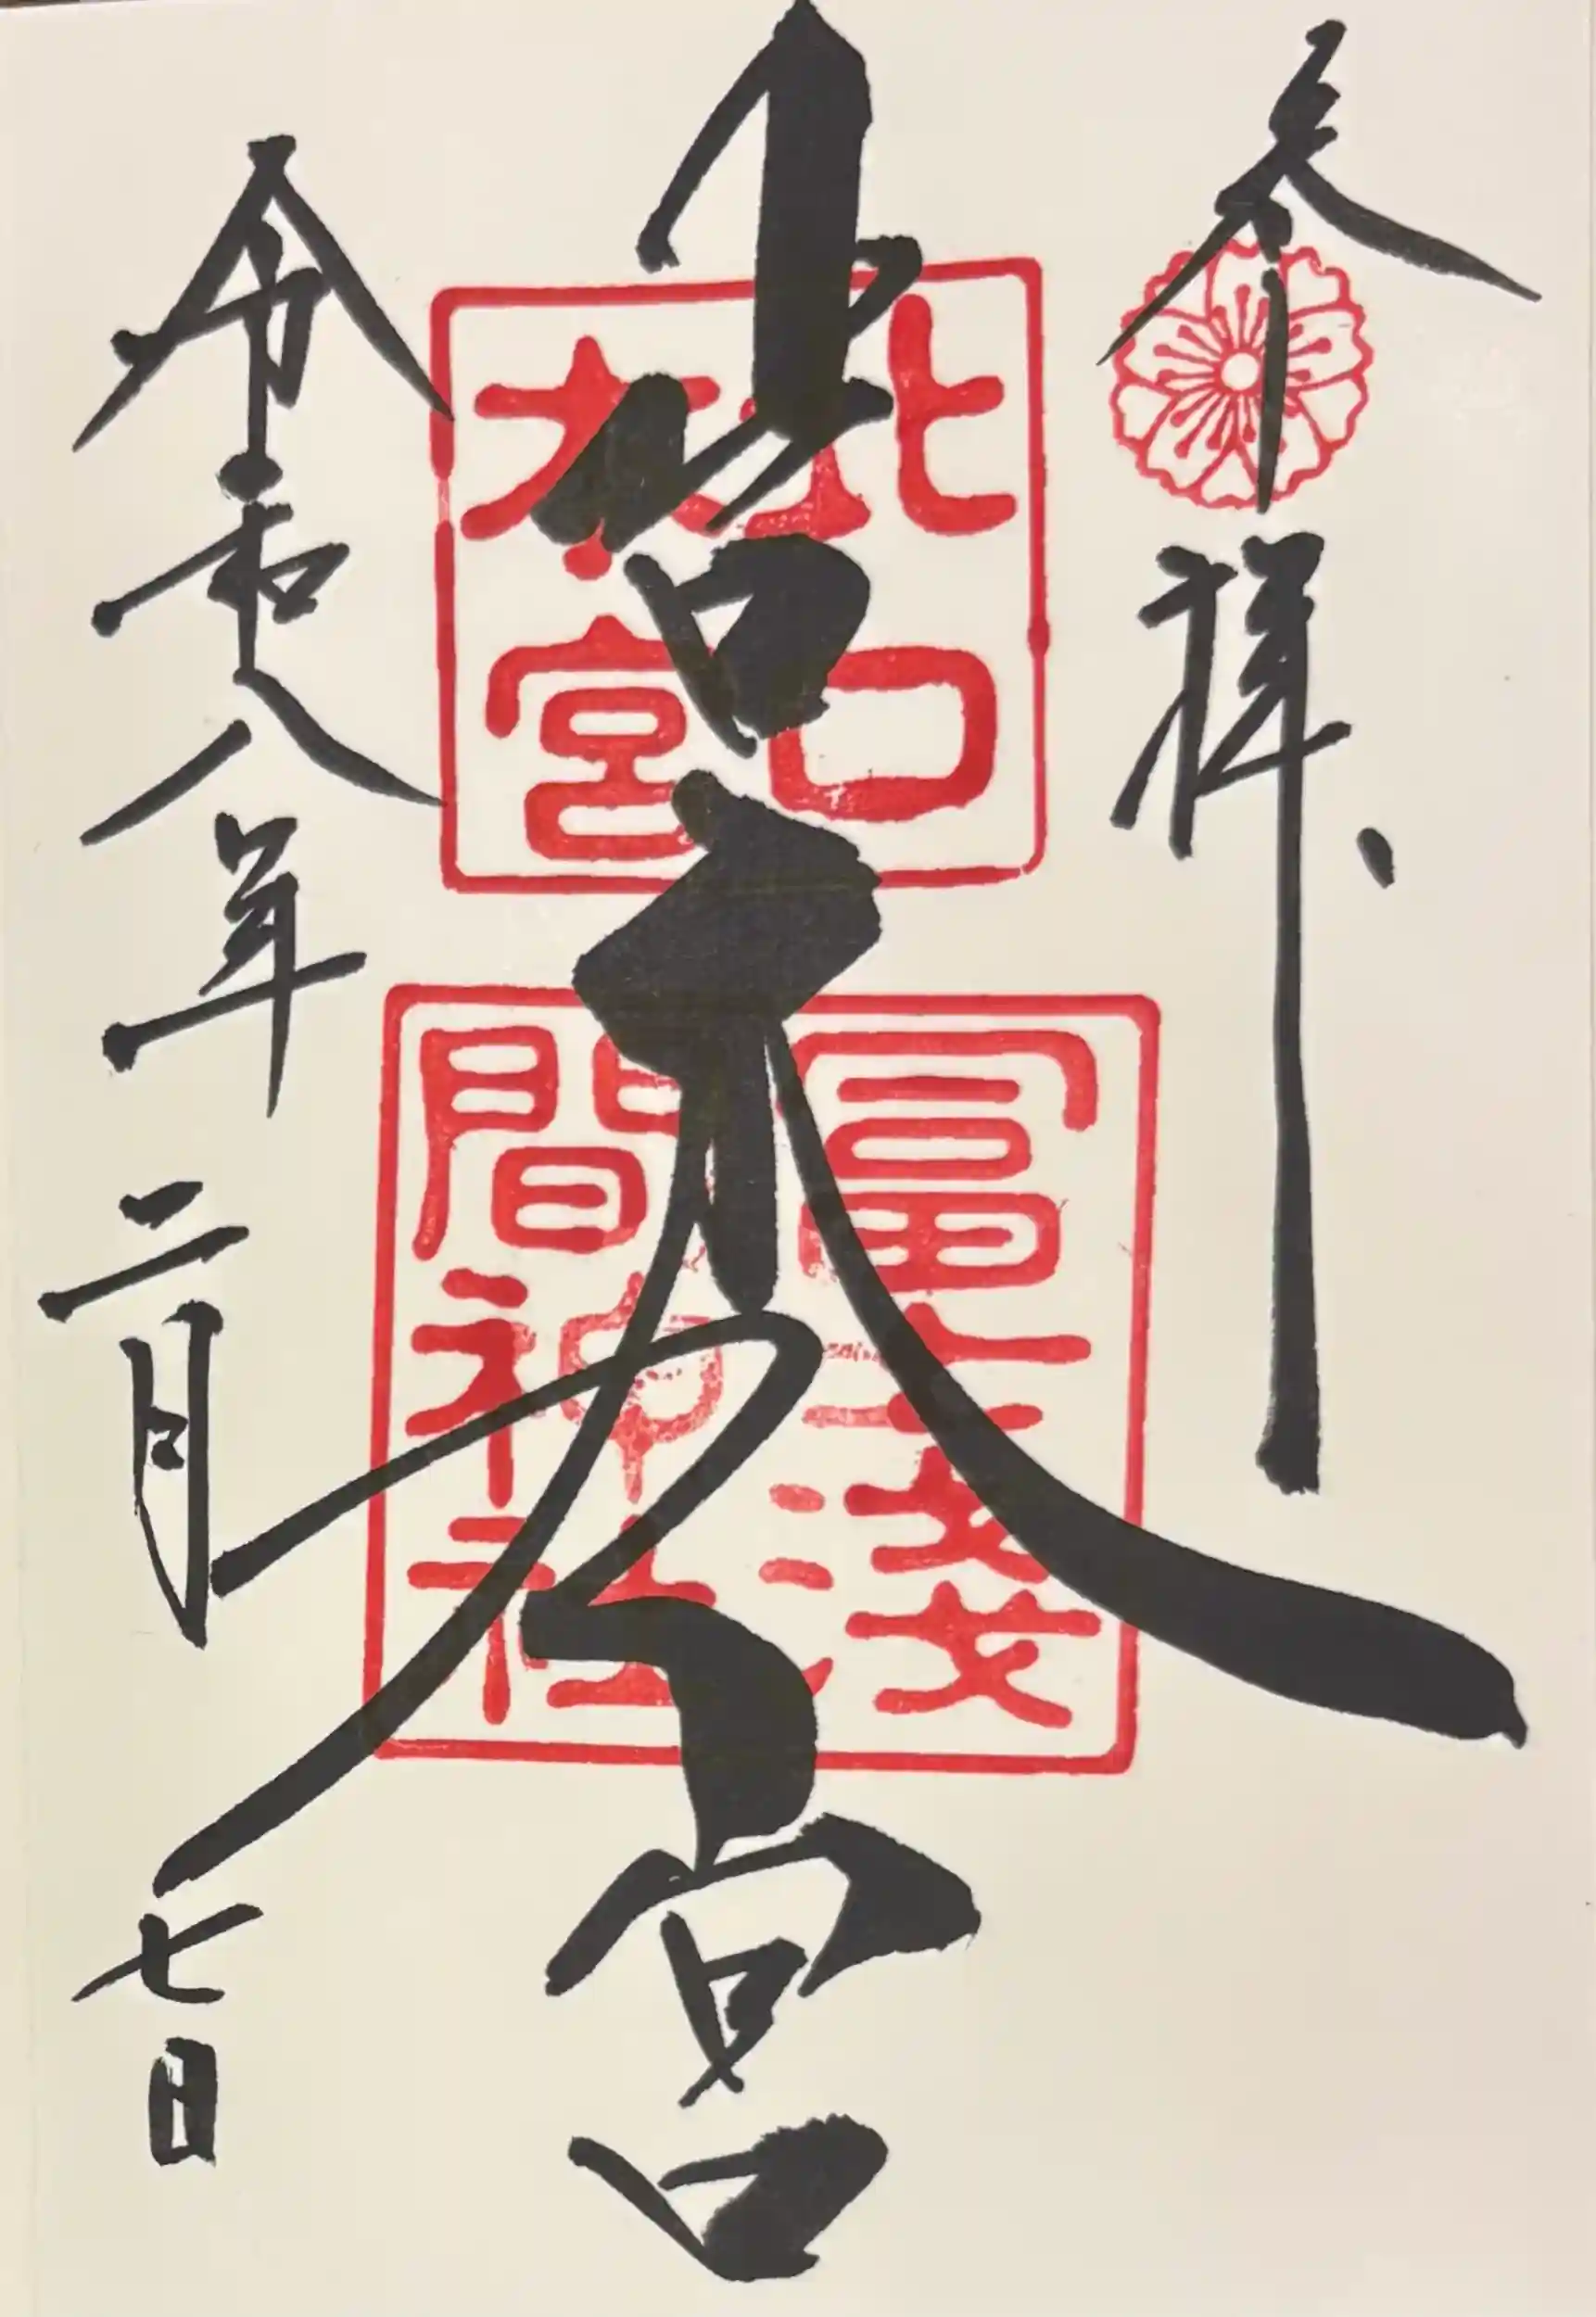 奉拝
北口本宮
北口
本宮
冨士淺
間神社
令和八年二月七日